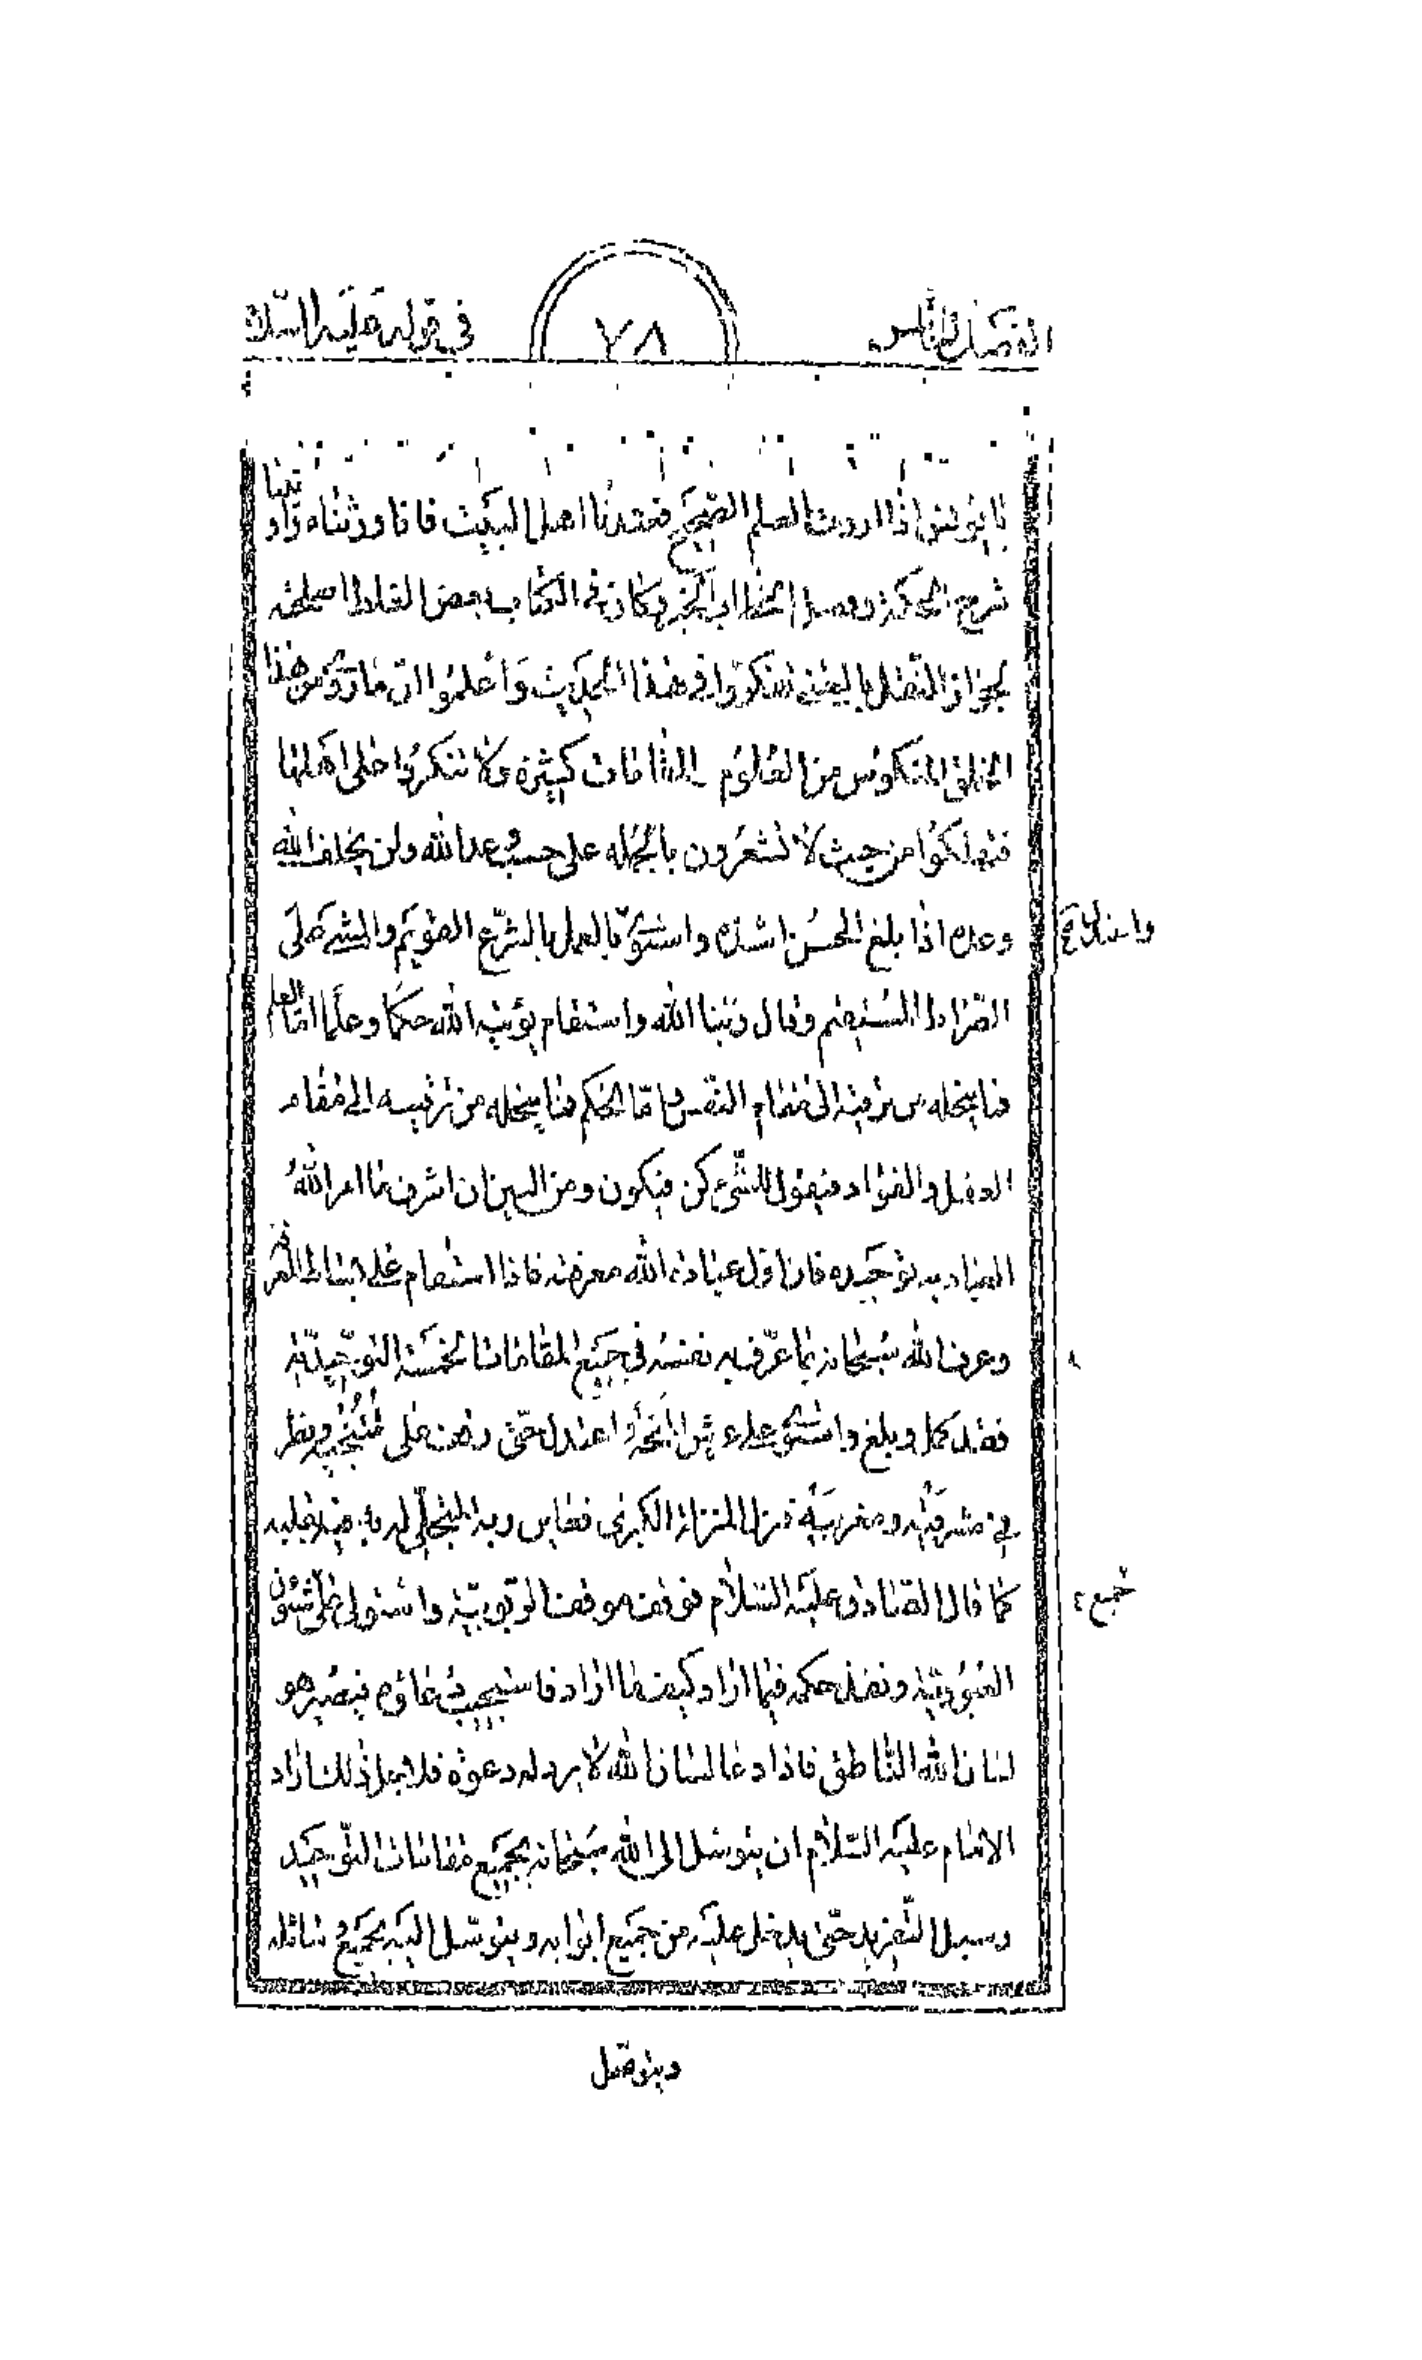 الفصل الثامن
٧٨
في قوله عليه السلام
يا يونس اذا اردت العلم الصحيح فعندنا اهل البيت فانا ورثناه واوتينا
شرع الحكمة وفصل الخطاب الخبر وكان في الكتاب بعض الغلاط اصلحته
بجواز النقل بالمعنى تفكروا في هذا الحديث وَاعلموا ان ما ترون من هذا
الخلق المنكوس من العلوم كثيرة ولا تنكروا على اهلها
فتهلكوا من حيث لا تشعرون بالجمله على حسب وعد الله ولن يخلف الله
وعده اذا بلغ الحسن اشده واستوى بالعمل بالشرع القويم والمشى على
واستدلاله
الصراط المستقيم وقال ربنا الله واستقام يؤتيه الله حكما وعلما اما العلم
فما ينحله من ترقيته الى مقام النفس واما الحكم فما ينحله من ترقيته الى مقام
العقل والفؤاد فيقول للشيء كن فيكون ومن البين ان اشرف ما امر الله
العباد به توحيده فان اول عبادة الله معرفته فاذا استقام على بساط المعرفة
وعرف الله سبحانه بما عرف به نفسه في جميع المقامات الخمسة التوحيدية
فقد كمل وبلغ واستوى على واعتدل حتى وقف على ونظر
في مشرقيه ومغربيه الكبرى المتجلي له به فيه عليه
كما قال الصادق عليه السلام فوقف موقف الربوبية واستولى على شئون
جميع
العبودية ونفذ حكمه فيما اراد كيف ما اراد فاستجيب دعاؤه فيصير هو
لسان الله الناطق فاذا دعا لسان الله لا يرد له دعوة فلاجل ذلك اراد
الامام عليه السلام ان يتوسل الى الله سبحانه بجميع مقامات التوحيد
وسبل التفريد حتى يدخل عليه من جميع ابوابه ويتوسل اليه بجميع وسائله
ويتوصل